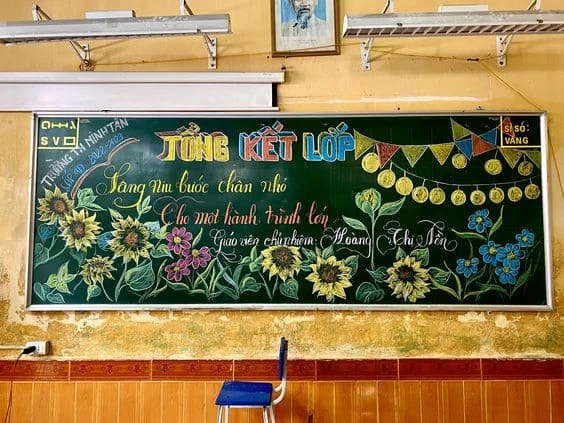 TRƯỜNG TH MINH TÂN
LỚP 4D 2022-2023
TỔNG KẾT LỚP
SĨ SỐ:
VẮNG
S V
Nâng niu bước chân nhỏ
Cho một hành trình lớn
Giáo viên chủ nhiệm: Hoàng Thị Nền